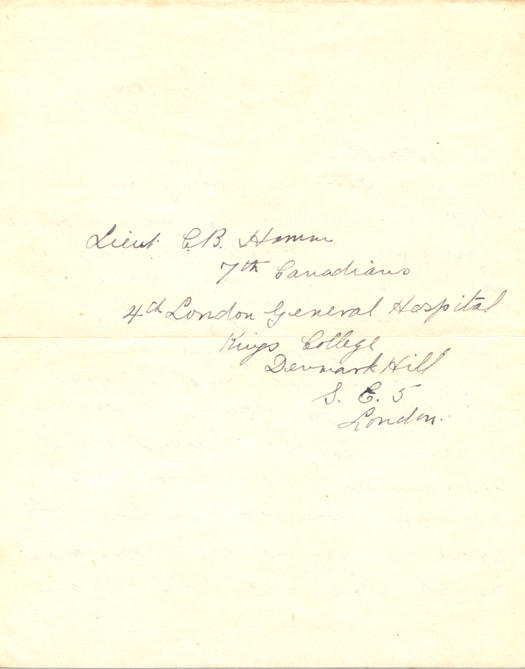 Lieut. C.B. Hamm
7th Canadians
4th London General Hospital
Kings College
Denmark Hill
S. E. 5
London.